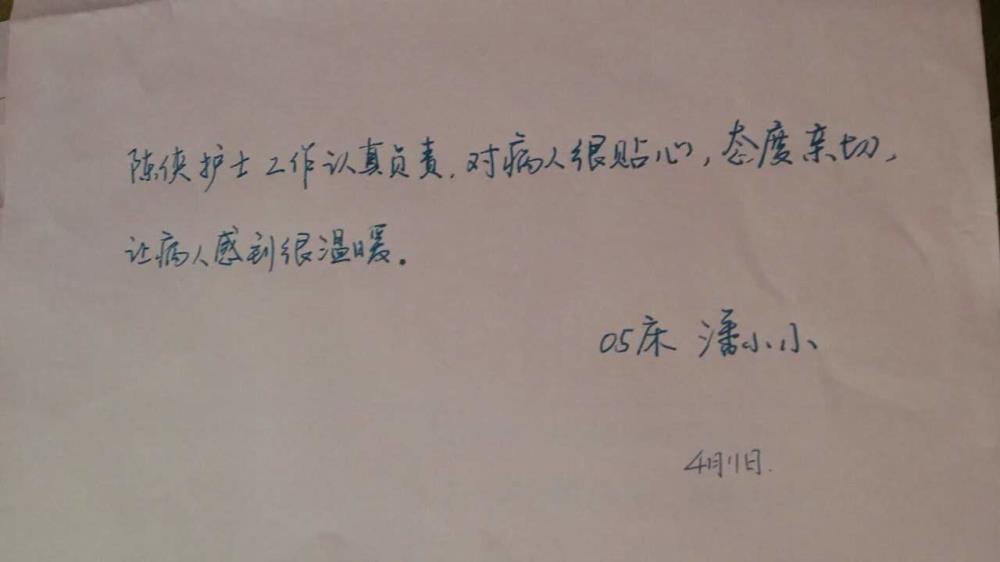 陈侠护士工作认真负责,对病人很贴心,态度亲切,
让病人感到很温暖。
05床 潘小小
4月11日.